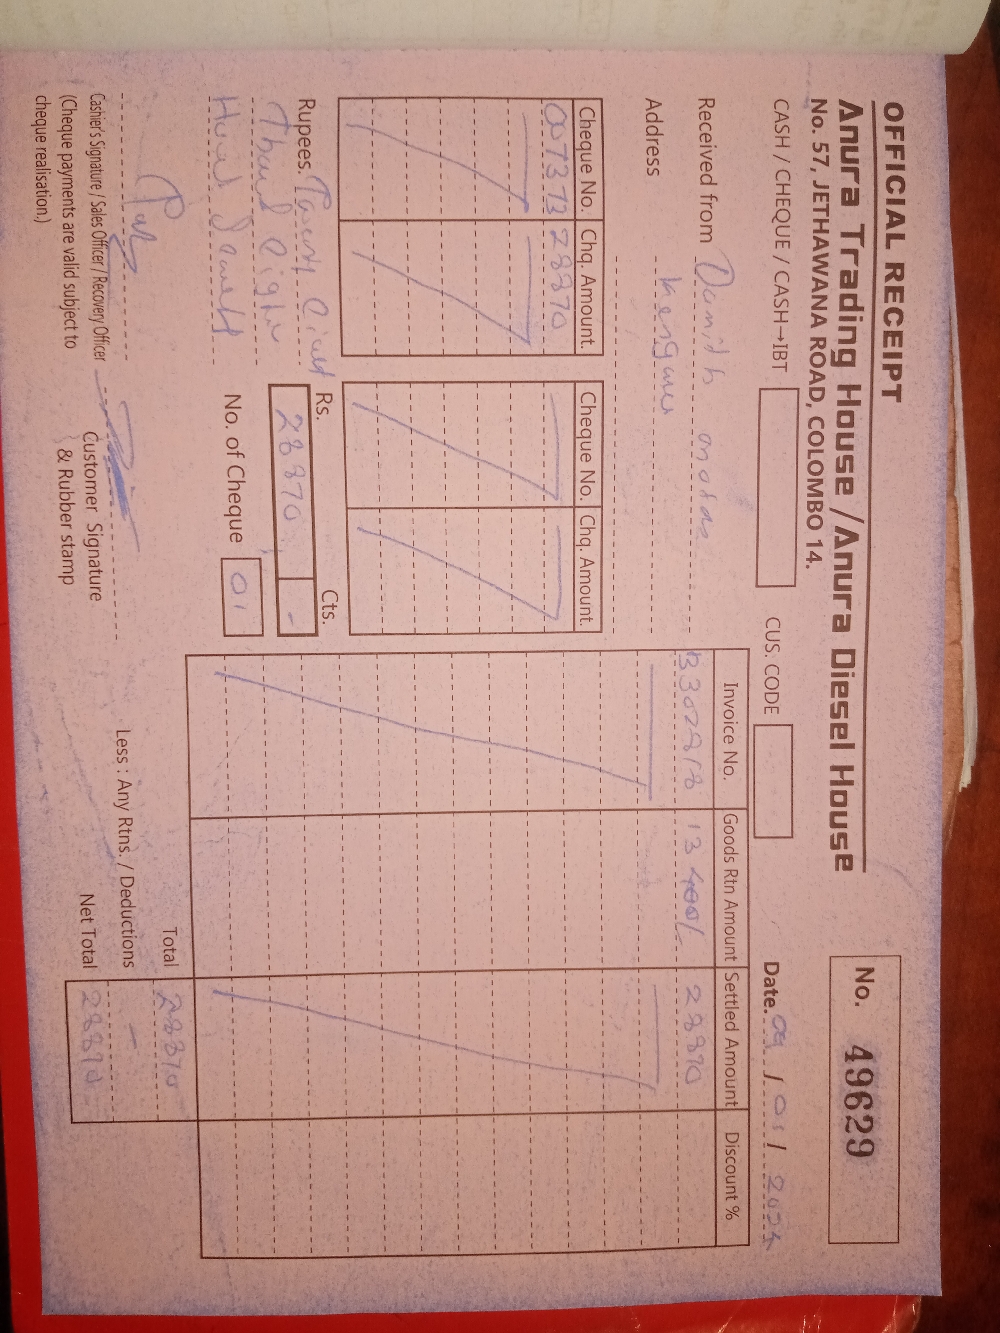 OFFICIAL RECEIPT
Anura Trading House / Anura Diesel House
No. 57, JETHAWANA ROAD, COLOMBO 14.
No. 49629
CASH / CHEQUE / CASH→IBT
CUS. CODE
Date. 09 / 01 /
Received from Damith
Address
Cheque No. Chq. Amount
007373 28870
Cheque No. Chq. Amount
Invoice No. Goods Rtn Amount Settled Amount Discount %
B302918 13 400/- 28870
Rupees. Twenty Eight
Thousand Eight
Hund
Rs. Cts.
28870 -
No. of Cheque 01
Total 28870
Less : Any Rtns. / Deductions -
Net Total 28870
Cashier's Signature / Sales Officer / Recovery Officer
(Cheque payments are valid subject to
cheque realisation.)
Customer Signature
& Rubber stamp